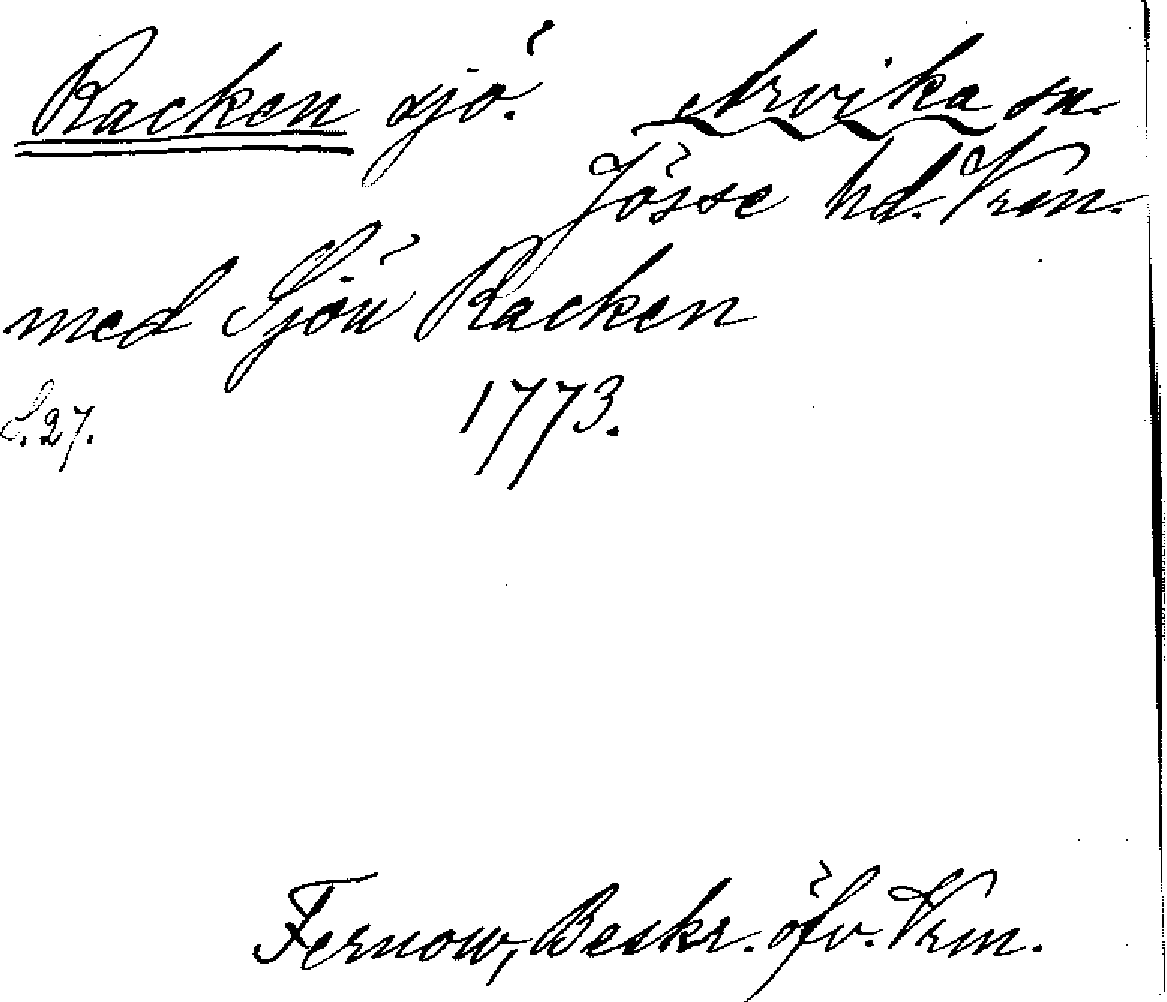 Racken sjö. Arvika sn.
Jösse hd. Vrm.
med Sjön Racken
S. 27. 1773.
Fernow, Beskr. öfv. Vrm.